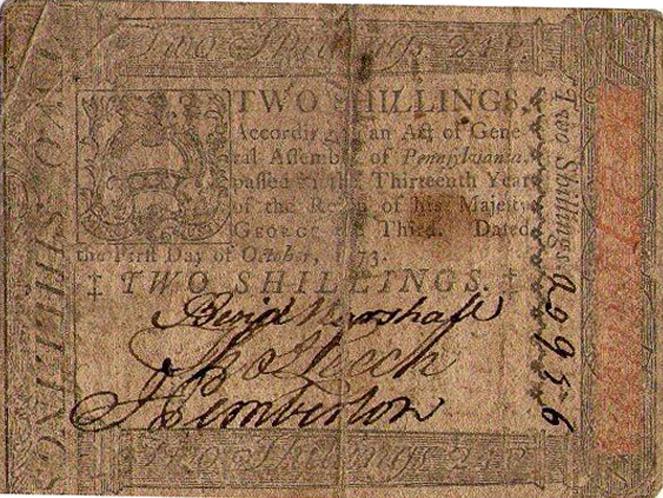 Two Shillings. 2 s. P.
TWO SHILLINGS.
According to an Act of Gene-
ral Assembly of Pennsylvania,
passed in the Thirteenth Year
of the Reign of his Majesty
GEORGE the Third. Dated
the First Day of October, 1773.
‡ TWO SHILLINGS. ‡
Marshall
J Pemberton
Two Shillings
TWO SHILLINGS
Two Shillings